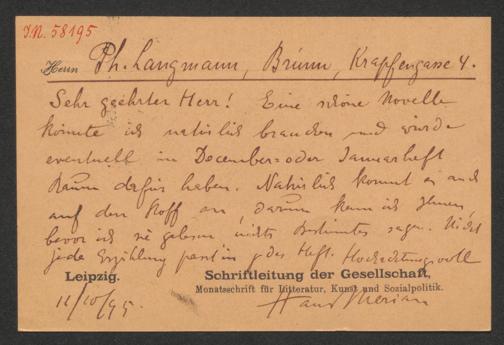 J.N. 58195
Herrn Ph. Langmann, Brünn, Krapfengasse 4.
Sehr geehrter Herr! Eine schöne Novelle
könnte ich natürlich brauchen und würde
eventuell im December= oder Januarheft
Raum dafür haben. Natürlich kommt es auch
auf den Stoff an, darum kann ich Ihnen,
bevor ich sie gelesen nichts Bestimmtes sagen. Nicht
jede Erzählung passt in jedes Heft. Hochachtungsvoll
Leipzig. Schriftleitung der Gesellschaft,
Monatsschrift für Litteratur, Kunst und Sozialpolitik.
11/10/95. Hans Merian